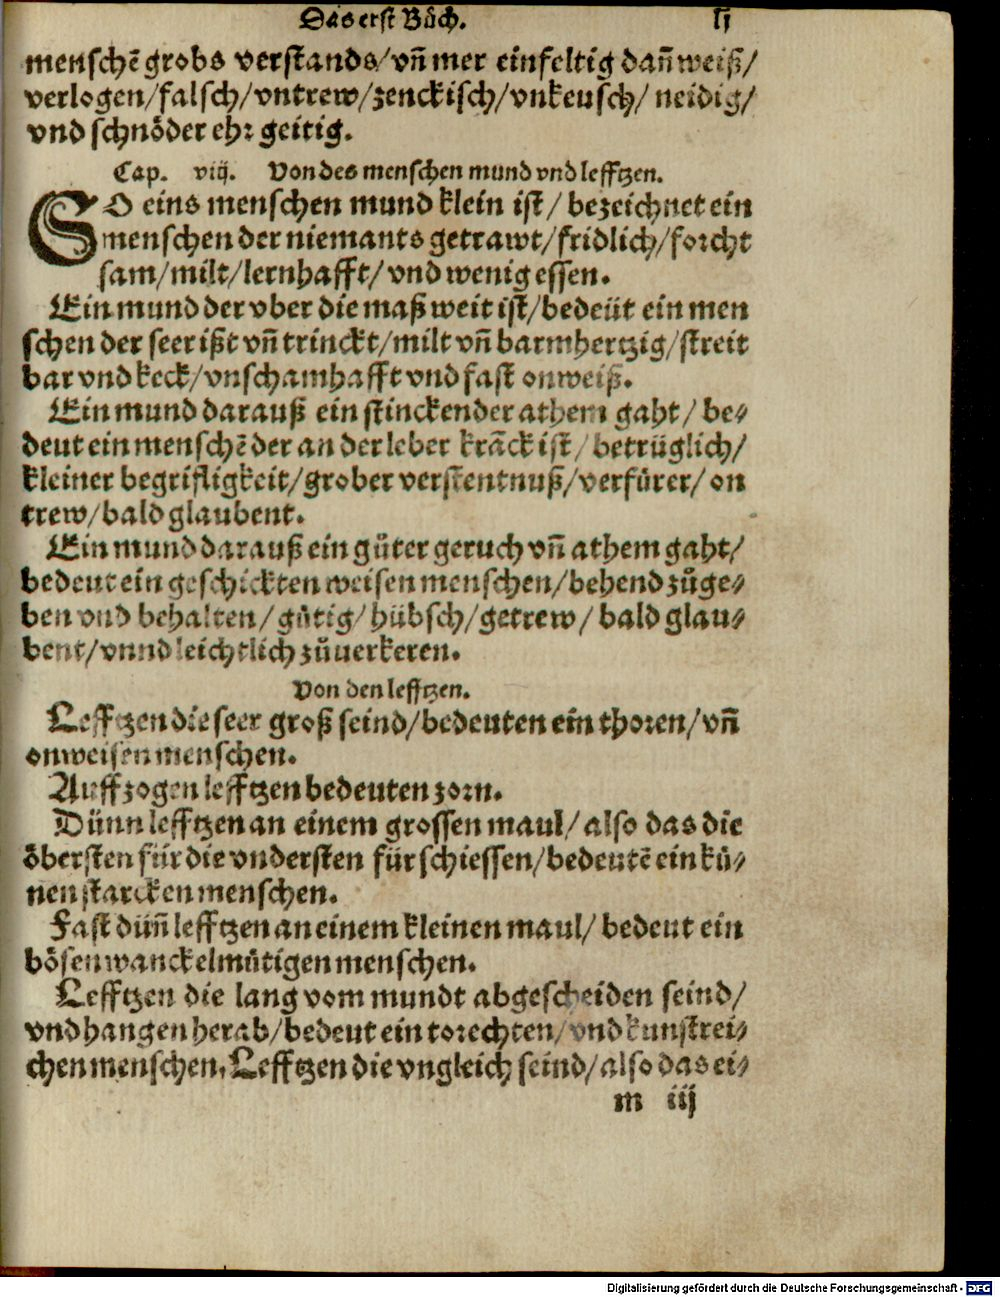 Das erst Bůch. lj
menschẽ grobs verstands/vñ mer einfeltig dañ weiß/
verlogen/falsch/vntrew/zenckisch/vnkeusch/ neidig/
vnd schnöder ehr geitig.
Cap. viij. Von des menschen mund vnd lefftzen.
SO eins menschen mund klein ist/ bezeichnet ein
menschen der niemants getrawt/fridlich/forcht
sam/milt/lernhafft/vnd wenig essen.
Ein mund der vber die maß weit ist/bedeüt ein men
schen der seer ißt vñ trinckt/milt vñ barmhertzig/streit
bar vnd keck/vnschamhafft vnd fast onweiß.
Ein mund darauß ein stinckender athem gaht/ be⸗
deut ein menschẽ der an der leber krãck ist/ betrüglich/
kleiner begrifligkeit/grober verstentnuß/verfürer/ on
trew/bald glaubent.
Ein mund darauß ein gůter geruch vñ athem gaht/
bedeut ein geschickten weisen menschen/behend zůge⸗
ben vnd behalten/gůtig/hübsch/getrew/ bald glau⸗
bent/vnnd leichtlich zůuerkeren.
Von den lefftzen.
Lefftzen die seer groß seind/bedeuten ein thoren/vñ
onweisen menschen.
Auffzogen lefftzen bedeuten zorn.
Dünn lefftzen an einem grossen maul/also das die
öbersten für die vndersten für schiessen/bedeutẽ ein kü⸗
nen starcken menschen.
Fast düñ lefftzen an einem kleinen maul/ bedeut ein
bösen wanckelmůtigen menschen.
Lefftzen die lang vom mundt abgescheiden seind/
vnd hangen herab/bedeut ein torechten/vnd kunstrei⸗
chen menschen. Lefftzen die vngleich seind/also das ei⸗
m iij
Digitalisierung gefördert durch die Deutsche Forschungsgemeinschaft - DFG